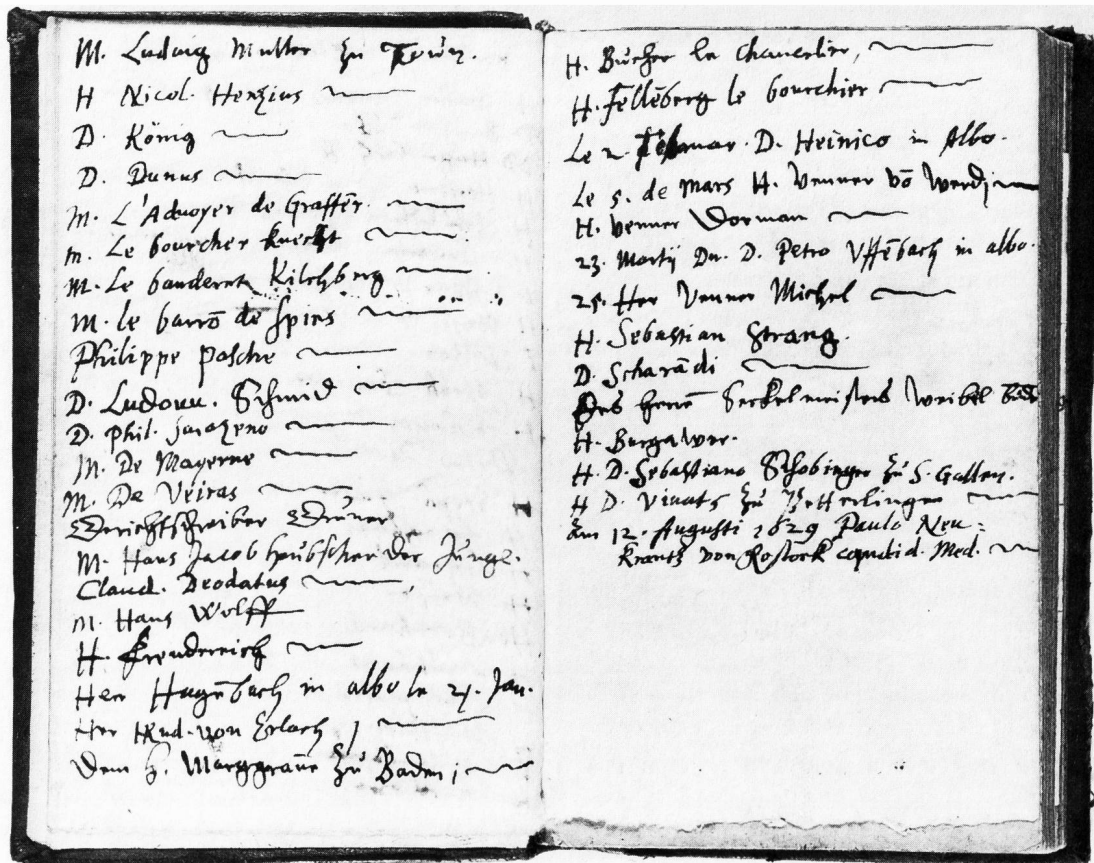 M. Ludwig Muller zu
H Nicol. Henzius
D. König
D. Dunus
M. L'Advoyer de Graffēr.
m. Le bourcher knecht
M. Le banderet Kilchberg
M. le barrō de spies
Philippe Pasche
D. Ludovic. Schmid
D. Phil. sarazeno
M. De Mayerne
M. De Veiras
Grichtschreiber
M. Hans Jacob Heübscher Der Jünge.
Claud. Deodatus
M. Hans Wolff
H. freudereich
Her Hagēbach in albo le 21. Jan.
Her Rud. von Erlach
Dem H. Marggraue zu Baden;
H. Bücher le Chancelier,
H. Fellēberg le bourchier
Le 2. D. Heinico in Albo.
Le 5. de Mars H. Venner vō Werdj
H. Venner Dorman
23. Martij Dn. D. Petro Vffēbach in albo.
25. Her Venner Michel
H. Sebastian Strang.
D. Scharādi
Des herrn Seckelmeisters Weibel
H. Burgalwer.
H. D. Sebastiano Schobinger zu S. Gallen.
H D. Vivats zu Petterlingen
Am 12. Augusti 1629 Paulo Neu:
krantz von Rostock candid. Med.